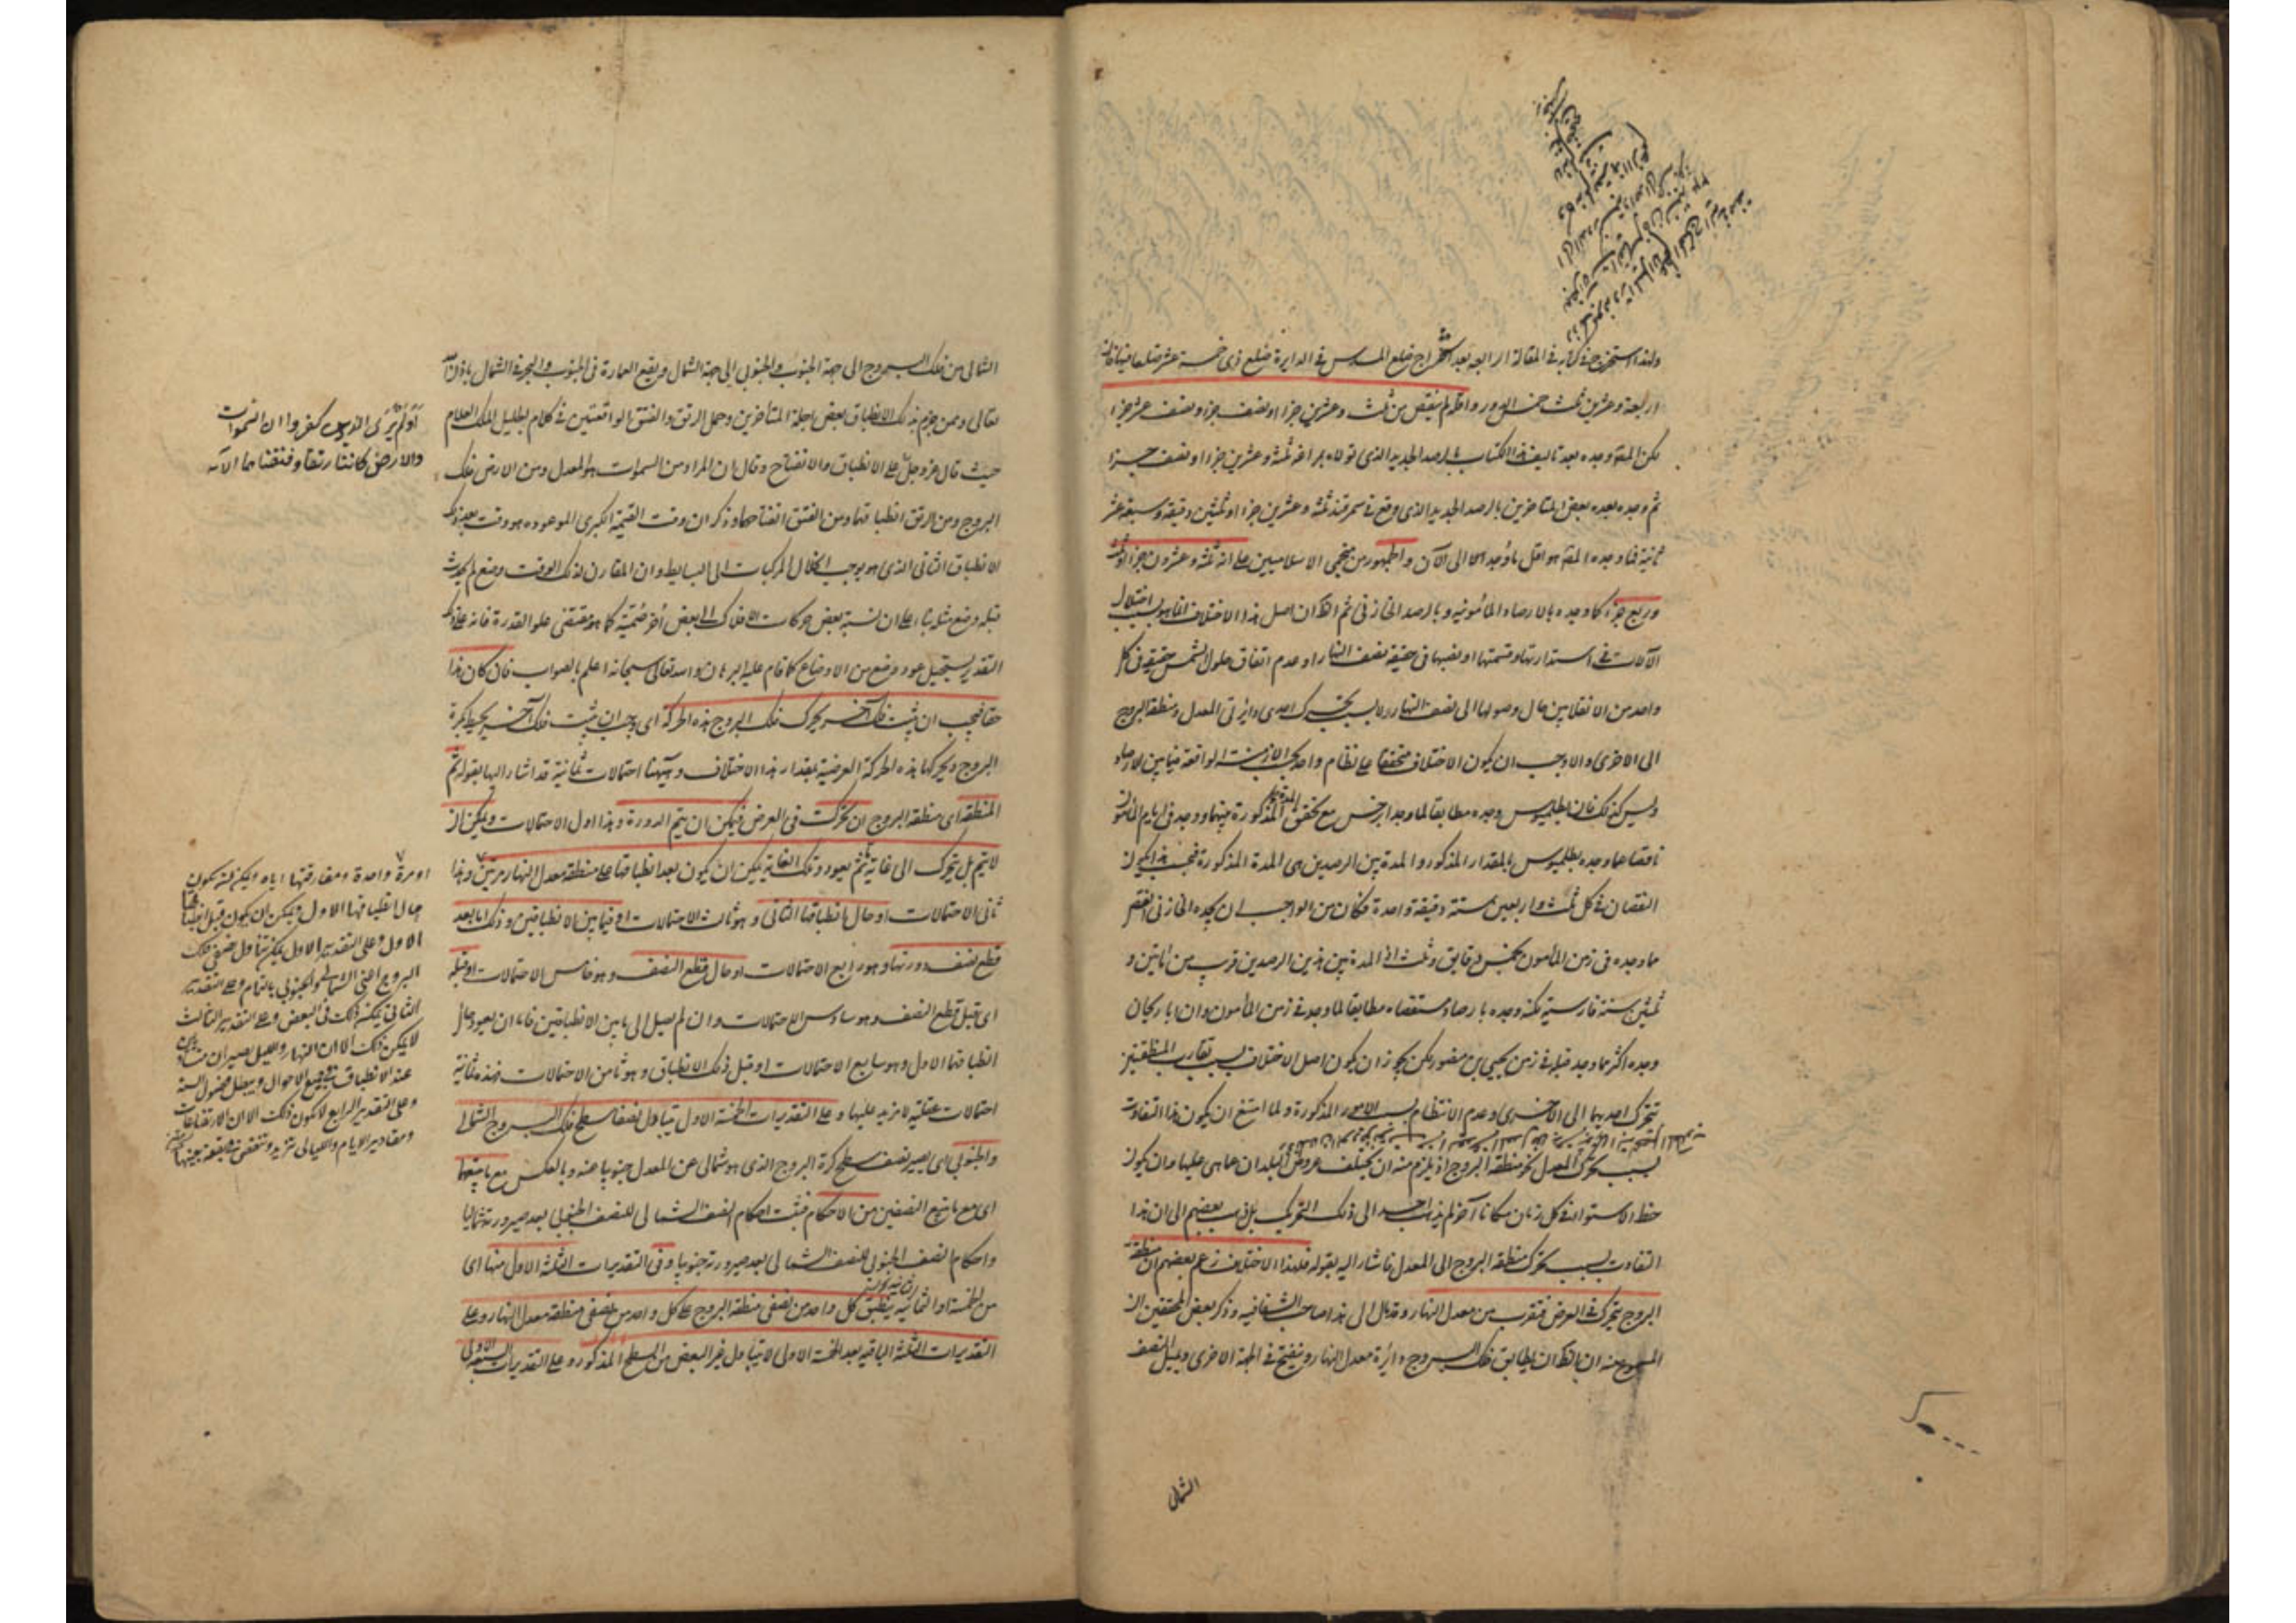 ولهذا استخرج في كتابه في المقالة الرابعة بعد استخراج ضلع المسدس في الدايرة ضلع ذي خمسة عشر ضلعا
اربعة وعشرين ثلث خمس الدور واظهر لم ينقص من ثلث وعشرين جزءا ونصف جزء ونصف عشر جزء
لكن المص وجده بعد تاليف هذا الكتاب بالرصد الجديد الذي تولاه بمراغه ثلثة وعشرين جزءا ونصف جزء
ثم وجده بعده بعض المتاخرين بالرصد الجديد الذي وقع في سمرقند ثلثة وعشرين جزءا وثلثين دقيقة وسبع عشر
ثانية فما وجده المص هو اقل ما وجد الى الآن والجمهور من منجمي الاسلاميين على انه ثلثة وعشرون جزءا وثلث
وربع جزء كما وجده بالارصاد المأمونيه وبالرصد الخازني ثم الظ ان اصل هذا الاختلاف انما هو بسبب اختلال
الآلات في استدارتها وقسمتها او نصبها في حقيقة نصف النهار او عدم اتفاق حلول الشمس حقيقة في كل
واحد من الانقلابين حال وصولها الى نصف النهار لا بسبب تحرك احدى دايرتي المعدل ومنطقة البروج
الى الاخرى والا وجب ان يكون الاختلاف متحققا على نظام واحد بحسب الازمنة الواقعة فيما بين الارصاد
وليس كذلك فان بطلميوس وجده مطابقا لما وجد ابرخس مع تحقق المدة المذكورة بينهما ووجد في ايام المأمون
ناقصا عما وجده بطلميوس بالمقدار المذكور والمدة بين الرصدين هي المدة المذكورة فيجب ان يكون
النقصان في كل ثلث واربعين سنة دقيقة واحدة فكان من الواجب ان يجده الخازني انقص
مما وجده في زمن المأمون بخمس دقايق وثلث اذ المدة بين هذين الرصدين قريب من مأتين و
ثلثين سنة فارسية لكنه وجده بارصاد مستقصاه مطابقا لما وجد في زمن المأمون وان ابا ريحان
وجده اكثر مما وجد قبله في زمن يحيى بن منصور لكن يجوز ان يكون اصل الاختلاف بسبب تقارب المنطقتين
بتحرك احديهما الى الاخرى وعدم الانتظام بسبب الامور المذكورة ولما امتنع ان يكون هذا التفاوت
بسبب تحرك المعدل نحو منطقة البروج اذ يلزم منه ان يختلف عروض البلدان عما هي عليها وان يكون
خط الاستواء في كل زمان مكانا آخر لم يذهب احد الى ذلك التحريك بل ذهب بعضهم الى ان هذا
التفاوت بسبب تحرك منطقة البروج الى المعدل فاشار اليه بقوله فلهذا الاختلاف زعم بعضهم ان منطقة
البروج يتحرك في العرض فتقرب من معدل النهار وقد مال الى هذا صاحب الشفا فيه وذكر بعض المحققين ان
المسموع عنه ان بالظ ان يطابق فلك البروج دائرة معدل النهار وينفتح في الجهة الاخرى ويميل النصف
الشمالي
الشمالي من فلك البروج الى جهة الجنوب والجنوبي الى جهة الشمال ويقع العمارة في الجنوب والبحر في الشمال باذن الله
تعالى وممن جزم بذلك الانطباق بعض اجلة المتأخرين وحمل الرتق والفتق الواقعتين في كلام الجليل الملك العلام
حيث قال عز وجل على الانطباق والانفتاح وقال ان المراد من السموات هو المعدل ومن الارض فلك
البروج ومن الرتق انطباقهما ومن الفتق انفتاحهما وذكر ان وقت القيمة الكبرى الموعوده هو وقت بعد ذلك
الانطباق الثاني الذي هو يوجب انحلال المركبات الى البسايط وان المقارن لذلك الوقت وضع لم يحدث
قبله وضع مثله بناء على ان نسبة بعض حركات الافلاك الى بعض أخر صُمّية كما هو مقتضى علو القدرة فانه على ذلك
التقدير يستحيل عود وضع من الاوضاع كما قام عليه البرهان والله تعالى سبحانه اعلم بالصواب فان كان هذا
حقا فيجب ان يثبت فلك آخر يحرك فلك البروج هذه الحركة اى وجب ان يثبت فلك آخر يحيط بكرة
البروج ويحركها بهذه الحركة العرضية بمقدار هذا الاختلاف وههنا احتمالات ثمانية قد اشار اليها بقوله ثم
المنطقة اى منطقة البروج ان تحركت في العرض فيمكن ان يتم الدورة وهذا اول الاحتمالات ويمكن ان
لا يتم بل يتحرك الى غاية ثم يعود وتلك الغاية يمكن ان يكون بعد انطباقها على منطقة معدل النهار مرتين وهذا
ثاني الاحتمالات او حال انطباقها الثاني وهو ثالث الاحتمالات او فيما بين الانطباقين وذلك اما بعد
قطع نصف دورتها وهو رابع الاحتمالات او حال قطع النصف وهو خامس الاحتمالات او قبله
اى قبل قطع النصف وهو سادس الاحتمالات وان لم يصل الى ما بين الانطباقين فاما ان يعود حال
انطباقها الاول وهو سابع الاحتمالات او قبل ذلك الانطباق وهو ثامن الاحتمالات فهذه ثمانية
احتمالات عقلية لا مزيد عليها وعلى التقديرات الخمسة الاول يتبادل نصفا سطح فلك البروج الشمالي
والجنوبي اى يصير نصف سطح كرة البروج الذي هو شمالي عن المعدل جنوبيا عنه وبالعكس مع ما يتبعهما
اى مع ما يتبع النصفين من الاحكام فيثبت احكام النصف الشمالي للنصف الجنوبي بعد صيرورته شماليا
واحكام النصف الجنوبي للنصف الشمالي بعد صيرورته جنوبيا وفي التقديرات الثلثة الاول منها اى
من الخمسة او الثمانية ينطبق كل واحد من نصفي منطقة البروج على كل واحد من نصفي منطقة معدل النهار وعلى
التقديرات الثلثة الباقية بعد الخمسة الاولى لا يتبادل غير البعض من السطح المذكور وعلى التقديرات السبعة الاولى
أَوَلَمْ يَرَى الذين كفروا ان السموات
والارض كانتا رتقا ففتقناهما الآيه
او مرة واحدة ومفارقتها اياه ويمكن ان يكون
حال انطباقها الاول ويمكن ان يكون قبل انطباقها
الاول وعلى التقدير الاول يمكن تبادل نصفي فلك
البروج اعني الشمالي والجنوبي بالتمام وعلى التقدير
الثاني يمكن ذلك في البعض وعلى التقدير الثالث
لا يمكن ذلك الا ان النهار والليل يصيران متساويين
عند الانطباق في جميع الاحوال ويبطل فصول السنة
وعلى التقدير الرابع لا يكون ذلك الا ان الارتفاعات
ومقادير الايام والليالي تزيد وتنقص في بقعة بعينها